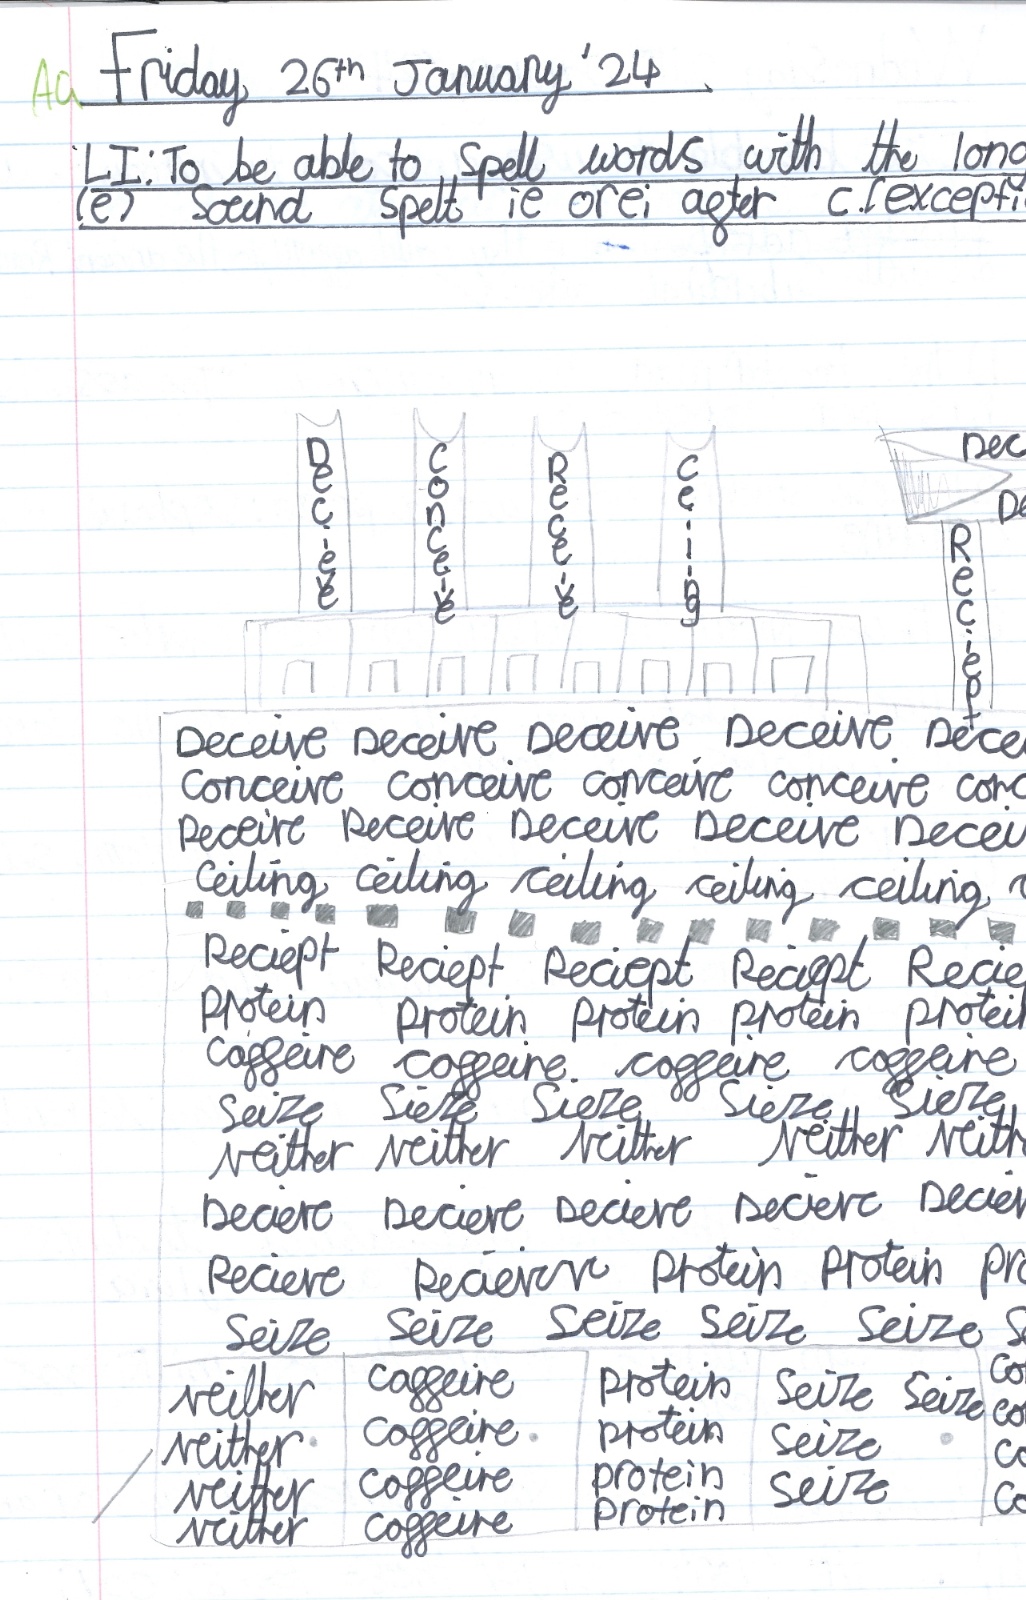 Aa Friday 26th January '24
LI: To be able to spell words with the long
(e) Sound Spelt ie or ei agter c. (excepti
Dec.ieve
Conceive
Receive
Ceiling
Dec
De
Reciept
Deceive Deceive Deceive Deceive Decei
Conceive Conceive conceive conceive conc
Receive Receive Deceive Deceive Deceiv
Ceiling ceiling ceiling ceiling ceiling
Reciept Reciept Reciept Reciept Recie
Protein protein protein protein protein
Caggeine coggeine. coggeine coggeine
Seize Sieze Sieze Sieze Sieze
Neither Neither Neither Neither Neith
Decieve Decieve Decieve Decieve Deciev
Recieve Protein Protein pro
Seize Seize Seize Seize Seize S
Neither
Neither
Neither
Neither
Caggeine
Coggeine
coggeine
coggeine
protein
protein
protein
protein
Seize Seize
Seize
Seize
Co
co
Co
Co